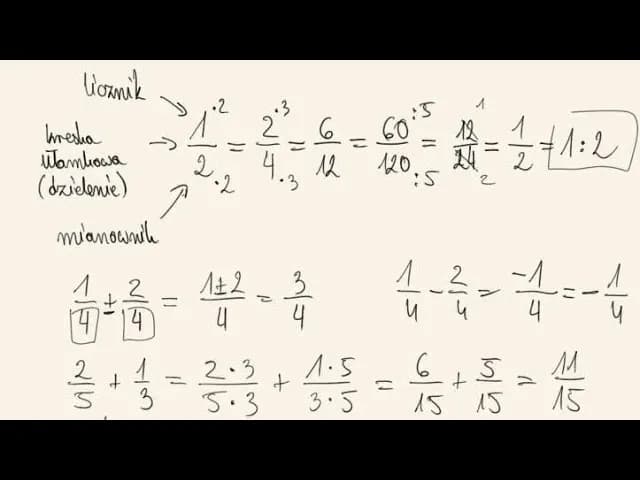 licznik
kreska ułamkowa (dzielenie)
mianownik
1·2/2·2 = 2·3/4·3 = 6/12 = 60:5/120:5 = 12/24 1/2 = 1/2 = 1:2
1/4 ± 2/4 = 1±2/4 = 3/4
1/4 - 2/4 = -1/4 = -1/4
2/5 + 1/3 = 2·3/5·3 + 1·5/3·5 = 6/15 + 5/15 = 11/15